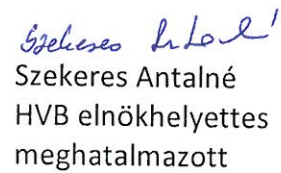 Szekeres Antalné
Szekeres Antalné
HVB elnökhelyettes
meghatalmazott